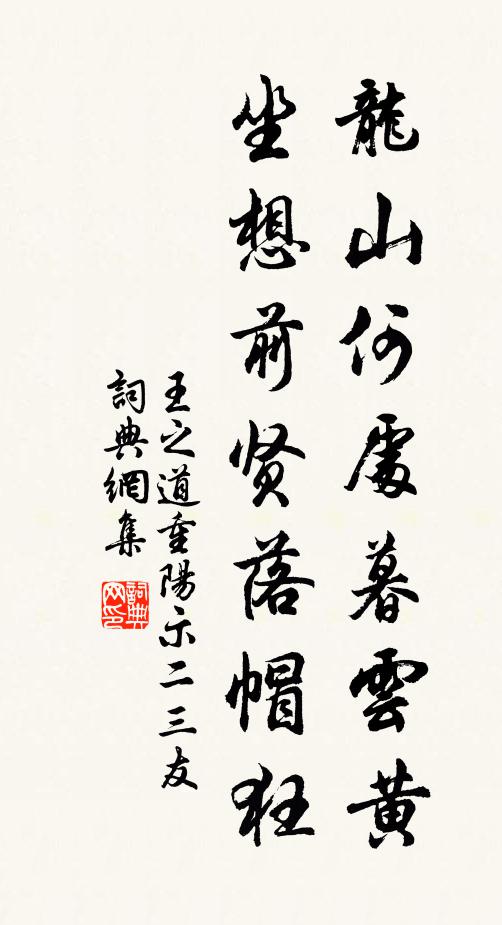 龍山何處暮雲黃
坐想前贤落帽狂
王之道重陽示二三友
詞典網集
詞典网印